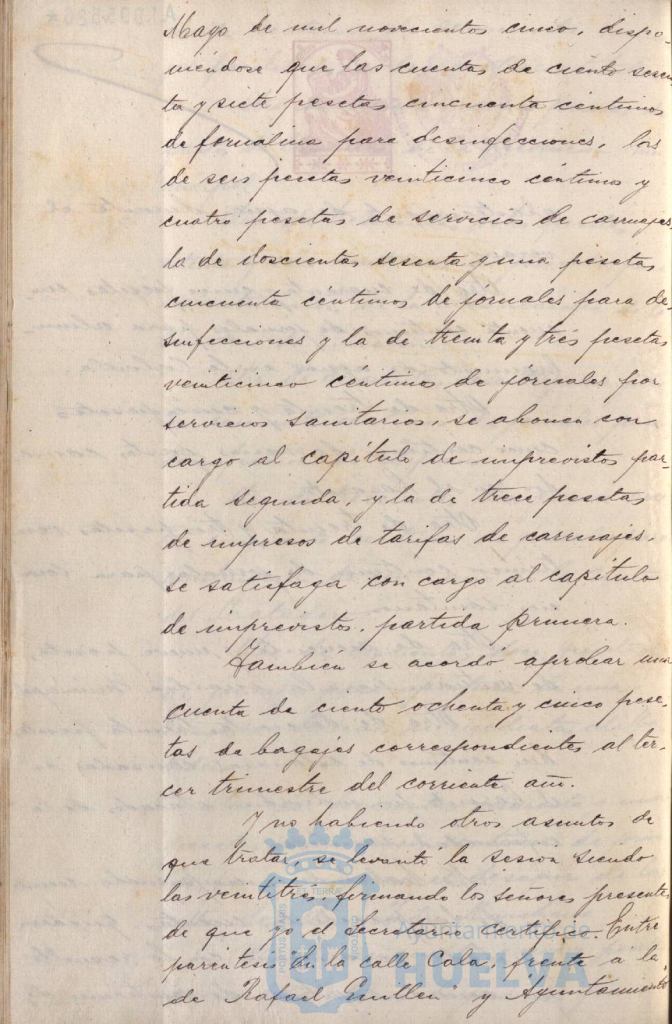 Mayo de mil novecientos cinco, dispo-
niéndose que las cuentas de ciento sesen
ta y siete pesetas cincuenta céntimos
de formalina para desinfecciones, las
de seis pesetas veinticinco céntimos y
cuatro pesetas de servicios de carruajes,
la de doscientas sesenta y una pesetas
cincuenta céntimos de jornales para de
sinfecciones y la de treinta y tres pesetas
veinticinco céntimos de jornales por
servicios sanitarios, se abonen con
cargo al capítulo de imprevistos par-
tida segunda, y la de trece pesetas
de impresos de tarifas de carruajes,
se satisfaga con cargo al capítulo
de imprevistos, partida primera.
También se acordó aprobar una
cuenta de ciento ochenta y cinco pese-
tas de bagajes correspondientes al ter-
cer trimestre del corriente año.
Y no habiendo otros asuntos de
que tratar, se levantó la sesión siendo
las veintitrés, firmando los señores presentes
de que yo el Secretario certifico. Entre
paréntesis de la calle Cala, frente a la
de Rafael Guillén y Ayuntamiento
Ayuntamiento de
HUELVA